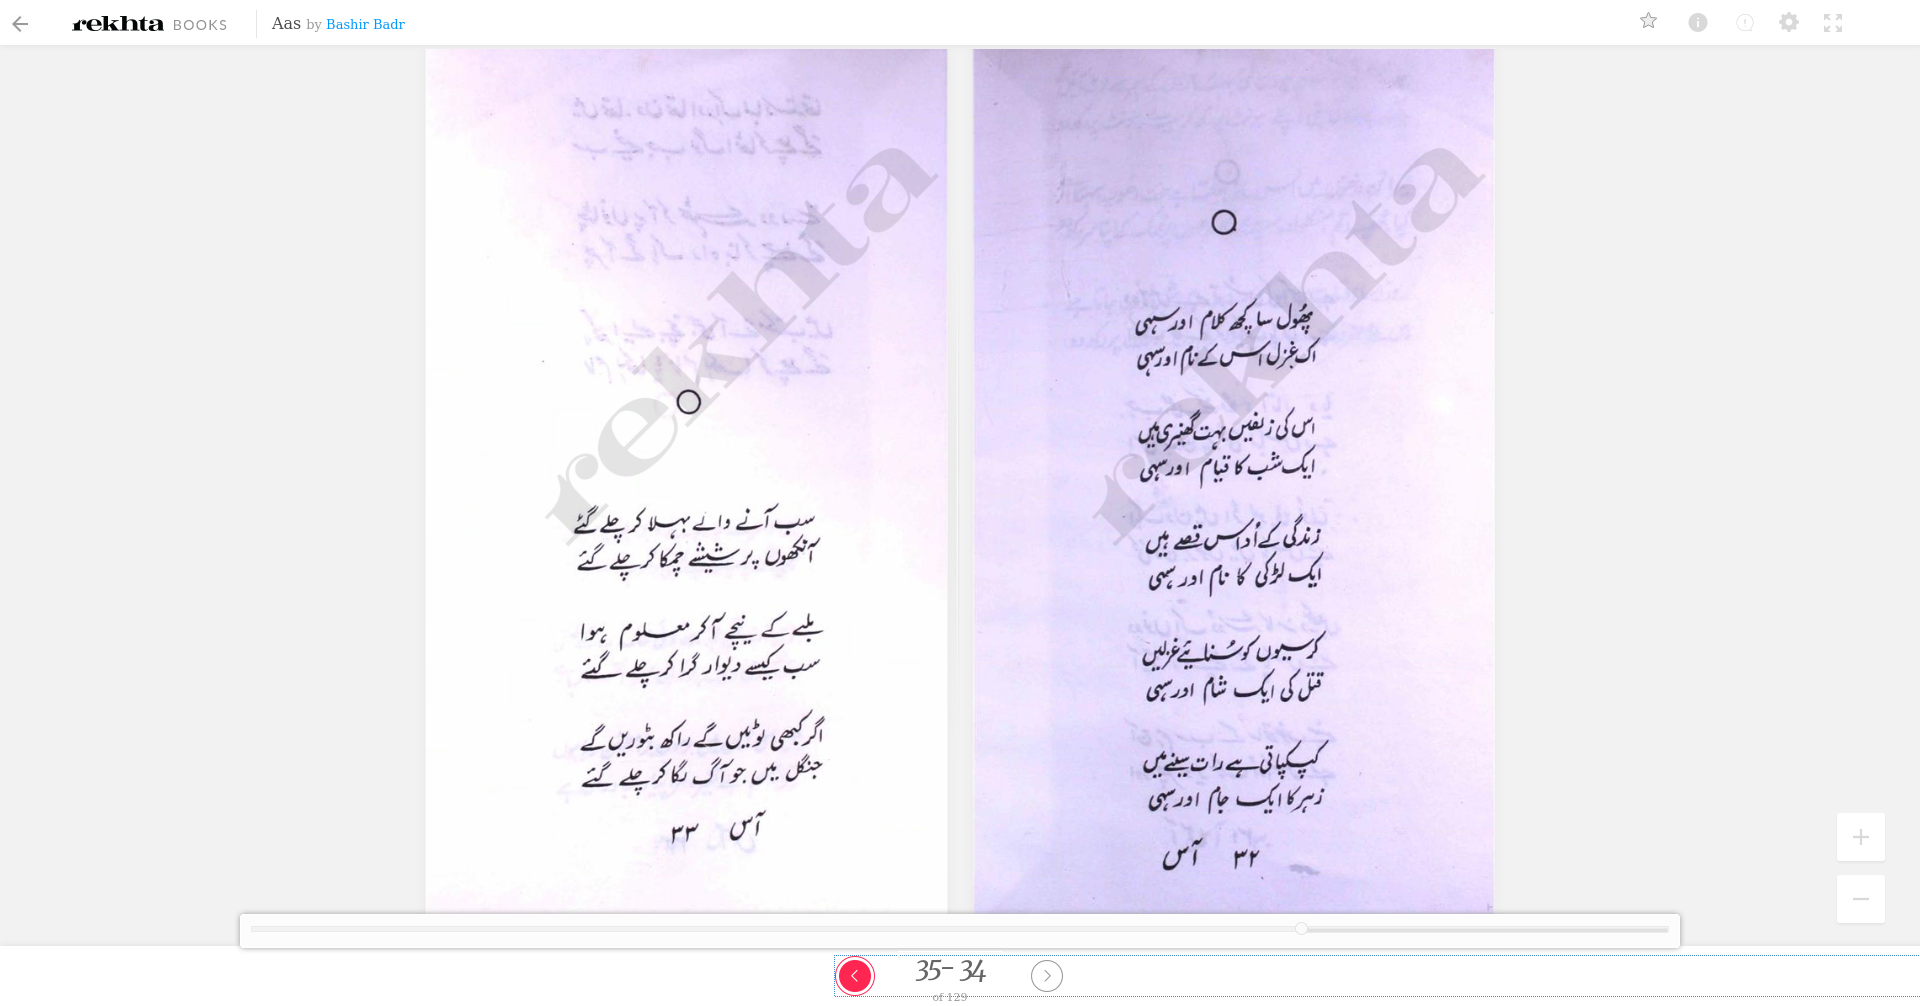 rekhta BOOKS
Aas by Bashir Badr
پھُول سا کچھ کلام اور سہی
اک غزل اس کے نام اور سہی
اس کی زلفیں بہت گھنیری ہیں
ایک شب کا قیام اور سہی
زندگی کے اُداس قصے ہیں
ایک لڑکی کا نام اور سہی
کرسیوں کو سُنائیے غزلیں
قتل کی ایک شام اور سہی
کپکپاتی ہے رات سینے میں
زہر کا ایک جام اور سہی
۳۲ آس
سب آنے والے بہلا کر چلے گئے
آنکھوں پر شیشے چمکا کر چلے گئے
ملبے کے نیچے آ کر معلوم ہوا
سب کیسے دیوار گرا کر چلے گئے
اگر کبھی لوٹیں گے راکھ بٹوریں گے
جنگل میں جو آگ لگا کر چلے گئے
آس ۳۳
rekhta
rekhta
35- 34
of 129